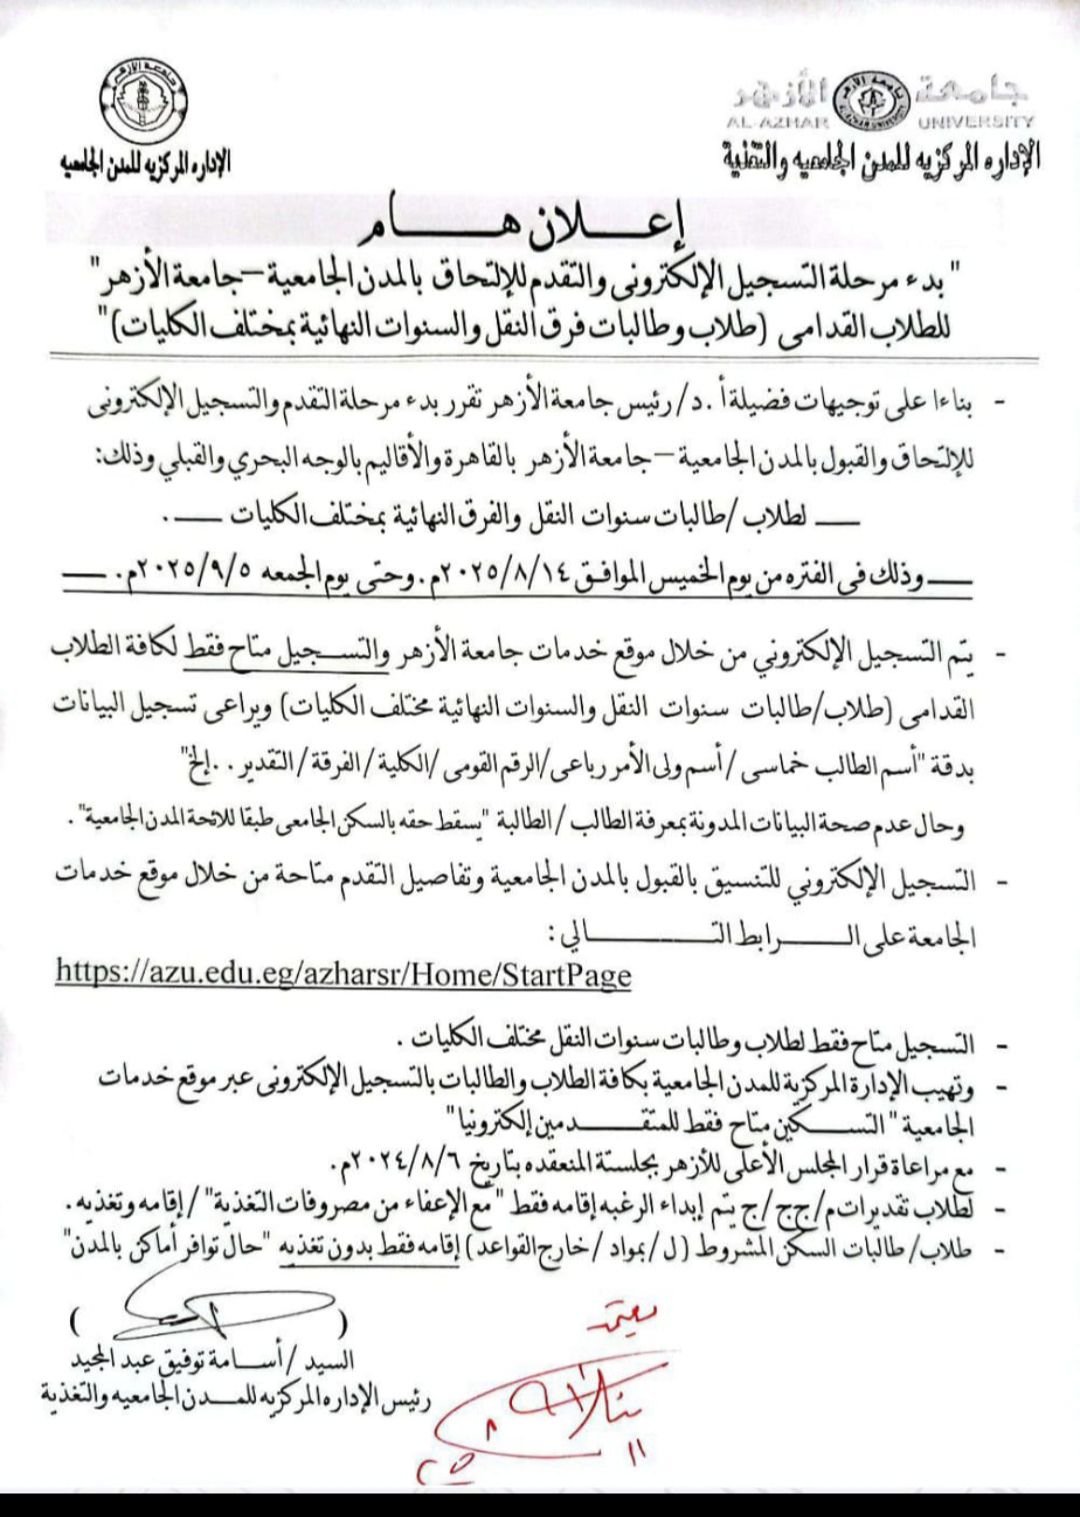 جامعة الأزهر
AL-AZHAR UNIVERSITY
الإداره المركزيه للمدن الجامعيه والتغذية
جامعة الأزهر
الإداره المركزيه للمدن الجامعيه
إعـــلان هـــــام
" بدء مرحلة التسجيل الإلكترونى والتقدم للإلتحاق بالمدن الجامعية –جامعة الأزهر"
للطلاب القدامى (طلاب وطالبات فرق النقل والسنوات النهائية بمختلف الكليات)"
- بناءا على توجيهات فضيلة أ .د/ رئيس جامعة الأزهر تقرر بدء مرحلة التقدم والتسجيل الإلكترونى
للإلتحاق والقبول بالمدن الجامعية –جامعة الأزهر بالقاهرة والأقاليم بالوجه البحري والقبلي وذلك:
ــــ لطلاب /طالبات سنوات النقل والفرق النهائية بمختلف الكليات ــــ .
ــــ وذلك فى الفتره من يوم الخميس الموافق ٢٠٢٥/٨/١٤م. وحتى يوم الجمعه ٢٠٢٥/٩/٥م. ــــ
- يتم التسجيل الإلكتروني من خلال موقع خدمات جامعة الأزهر والتسـجيل متاح فقط لكافة الطلاب
القدامى (طلاب/طالبات سنوات النقل والسنوات النهائية مختلف الكليات) ويراعى تسجيل البيانات
بدقة "أسم الطالب خماسى /أسم ولى الأمر رباعى/الرقم القومى /الكلية/ الفرقة/ التقدير . . .إلخ"
وحال عدم صحة البيانات المدونة بمعرفة الطالب /الطالبة "يسقط حقه بالسكن الجامعى طبقا للائحة المدن الجامعية".
- التسجيل الإلكتروني للتنسيق بالقبول بالمدن الجامعية وتفاصيل التقدم متاحة من خلال موقع خدمات
الجامعة على الـــــرابط التـــــــــالي :
https://azu.edu.eg/azharsr/Home/StartPage
- التسجيل متاح فقط لطلاب وطالبات سنوات النقل مختلف الكليات .
- وتهيب الإدارة المركزية للمدن الجامعية بكافة الطلاب والطالبات بالتسجيل الإلكترونى عبر موقع خدمات
الجامعية " التســـكين متاح فقط للمتقــــــدمين إلكترونيا"
- مع مراعاة قرار المجلس الأعلى للأزهر بجلستة المنعقده بتاريخ ٢٠٢٤/٨/٦م.
- لطلاب تقديرات م/جج /ج يتم إبداء الرغبه إقامه فقط "مع الإعفاء من مصروفات التغذية" /إقامه وتغذيه .
- طلاب/ طالبات السكن المشروط (ل/ بمواد /خارج القواعد) إقامه فقط بدون تغذيه "حال توافر أماكن بالمدن"
( )
السيد /أســـامة توفيق عبد المجيد
رئيس الإداره المركزيه للمـــدن الجامعيه والتغذية
يعتمد